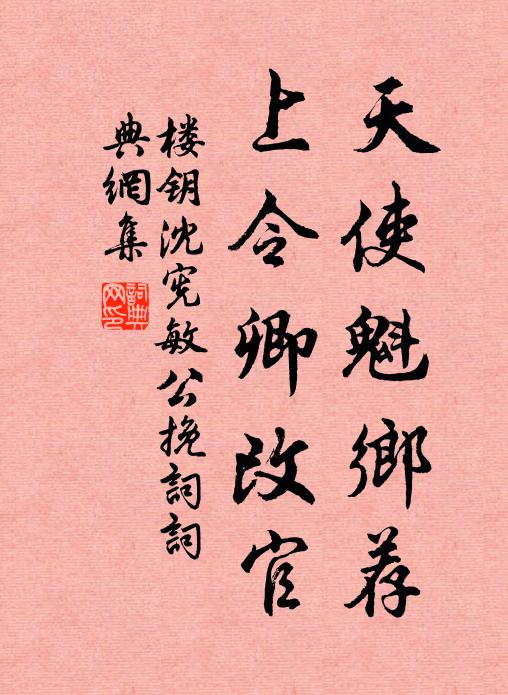 天使魁鄉荐
上令卿改官
楼钥沈宪敏公挽詞詞
典網集
詞典
网印